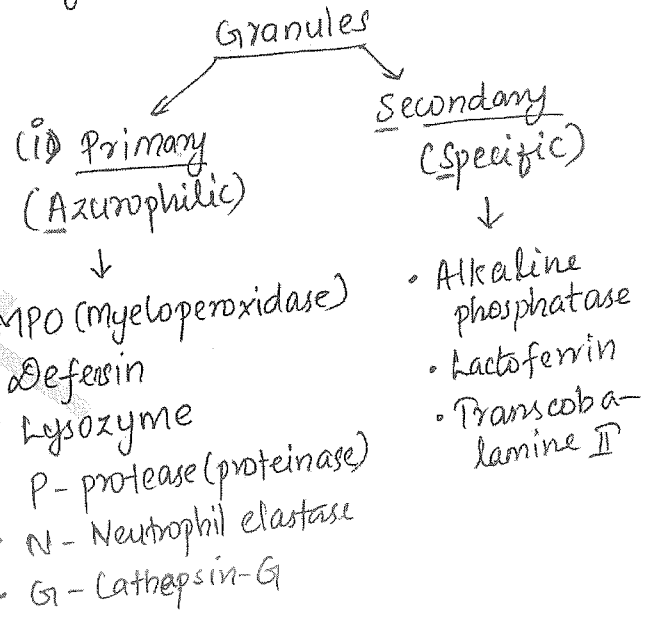 Granules
(i) Primary
(Azurophilic)
MPO (Myeloperoxidase)
Defensin
Lysozyme
P- protease (proteinase)
N - Neutrophil elastase
G - Cathepsin-G
Secondary
(Specific)
• Alkaline
phosphatase
• Lactoferrin
• Transcoba-
lamine II